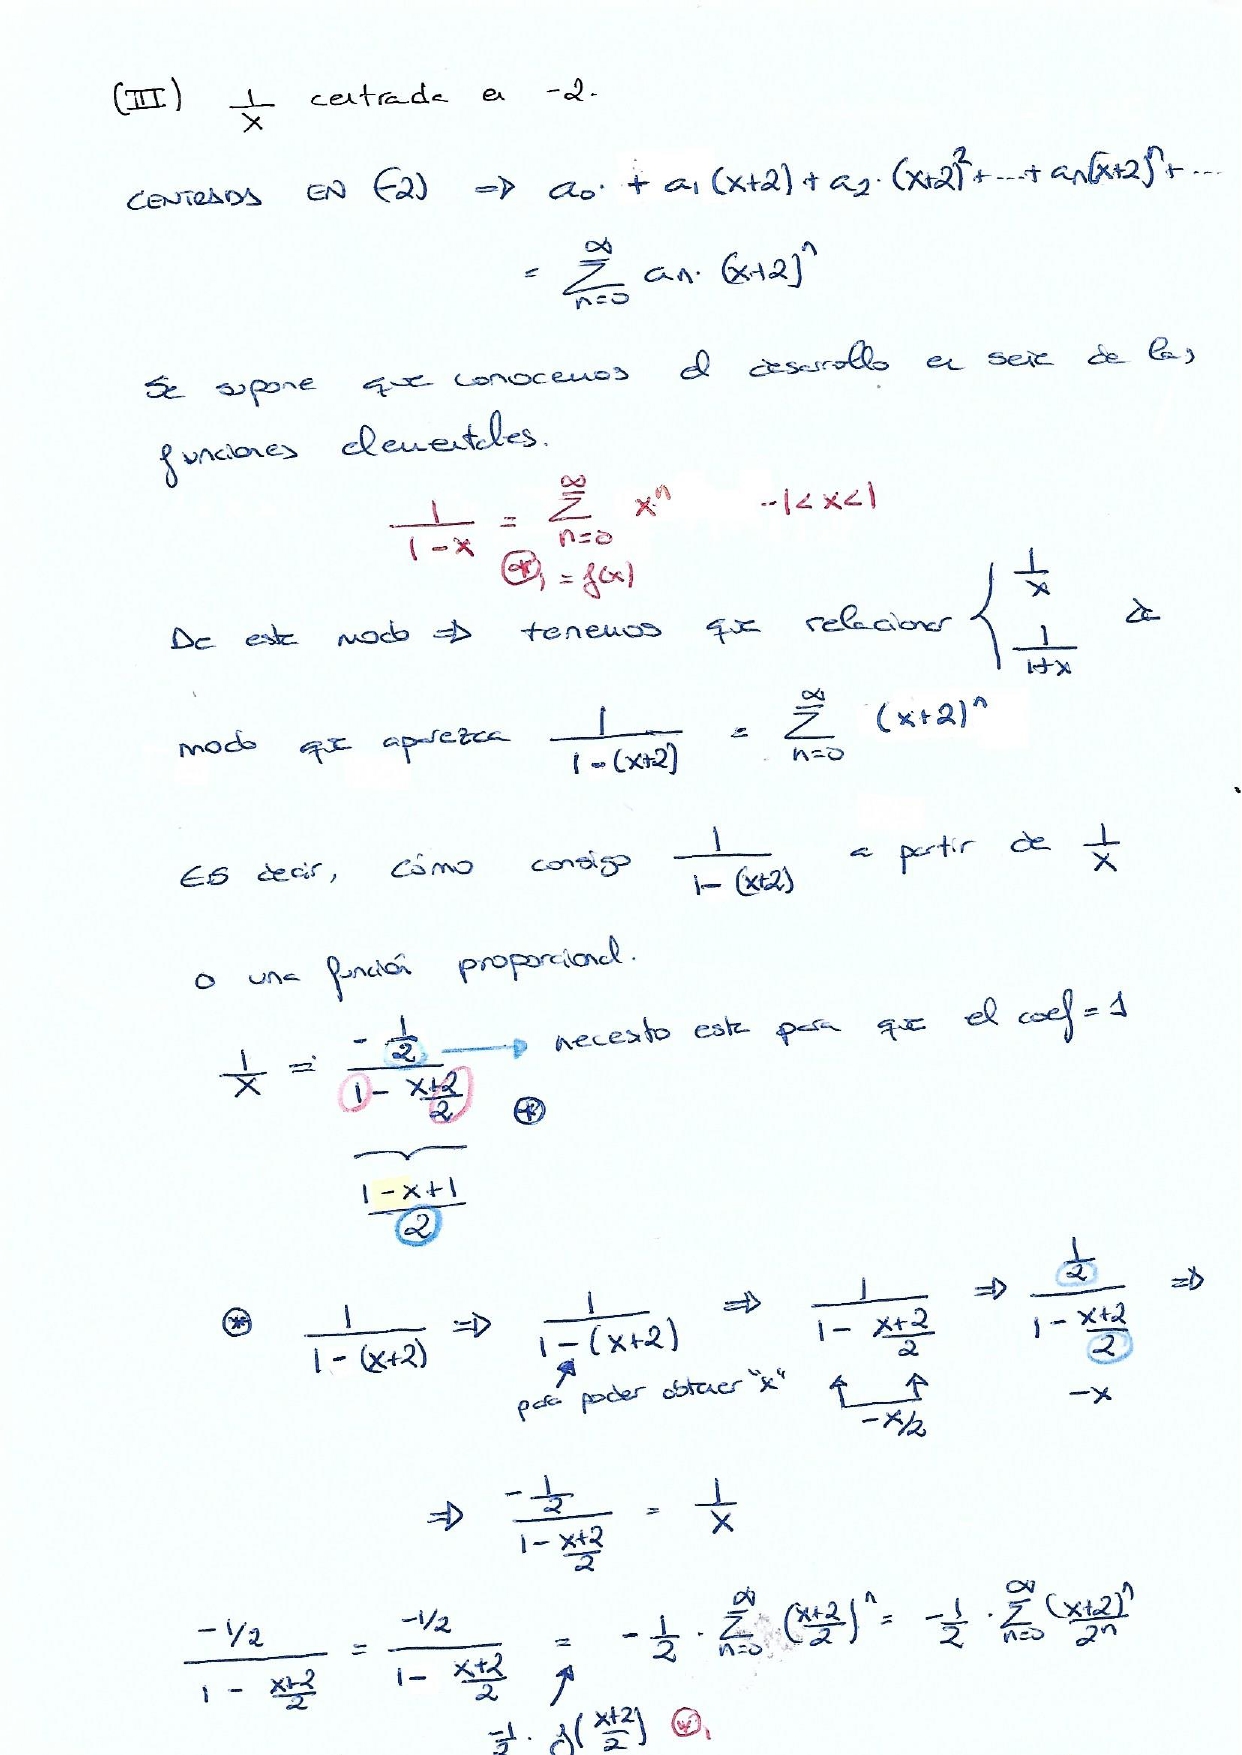 (III) 1/x centrada en -2.
CENTRADA EN (-2) ⇒ a₀· + a₁(x+2) + a₂·(x+2)² + ... + aₙ(x+2)ⁿ + ...
= ∑_{n=0}^{∞} aₙ· (x+2)ⁿ
Se supone que conocemos el desarrollo en serie de las
funciones elementales.
1/(1-x) = ∑_{n=0}^{∞} xⁿ -1<x<1
⊛₁ = f(x)
De este modo ⇒ tenemos que relacionar { 1/x 1/(1+x) de
modo que aparezca 1/(1-(x+2)) = ∑_{n=0}^{∞} (x+2)ⁿ
Es decir, cómo consigo 1/(1-(x+2)) a partir de 1/x
o una función proporcional.
1/x = (-1/2)/(1 - (x+2)/2) → necesito este para que el coef = 1
⊛
(1-x+1)/2
⊛ 1/(1-(x+2)) ⇒ 1/(1-(x+2)) ⇒ 1/(1-(x+2)/2) ⇒ (1/2)/(1-(x+2)/2) ⇒
para poder obtener "x" -x/2 -x
⇒ (-1/2)/(1-(x+2)/2) = 1/x
(-1/2)/(1-(x+2)/2) = (-1/2)/(1-(x+2)/2) = -1/2 · ∑_{n=0}^{∞} ((x+2)/2)ⁿ = -1/2 · ∑_{n=0}^{∞} (x+2)ⁿ/2ⁿ
-1/2 · f((x+2)/2) ⊛₁